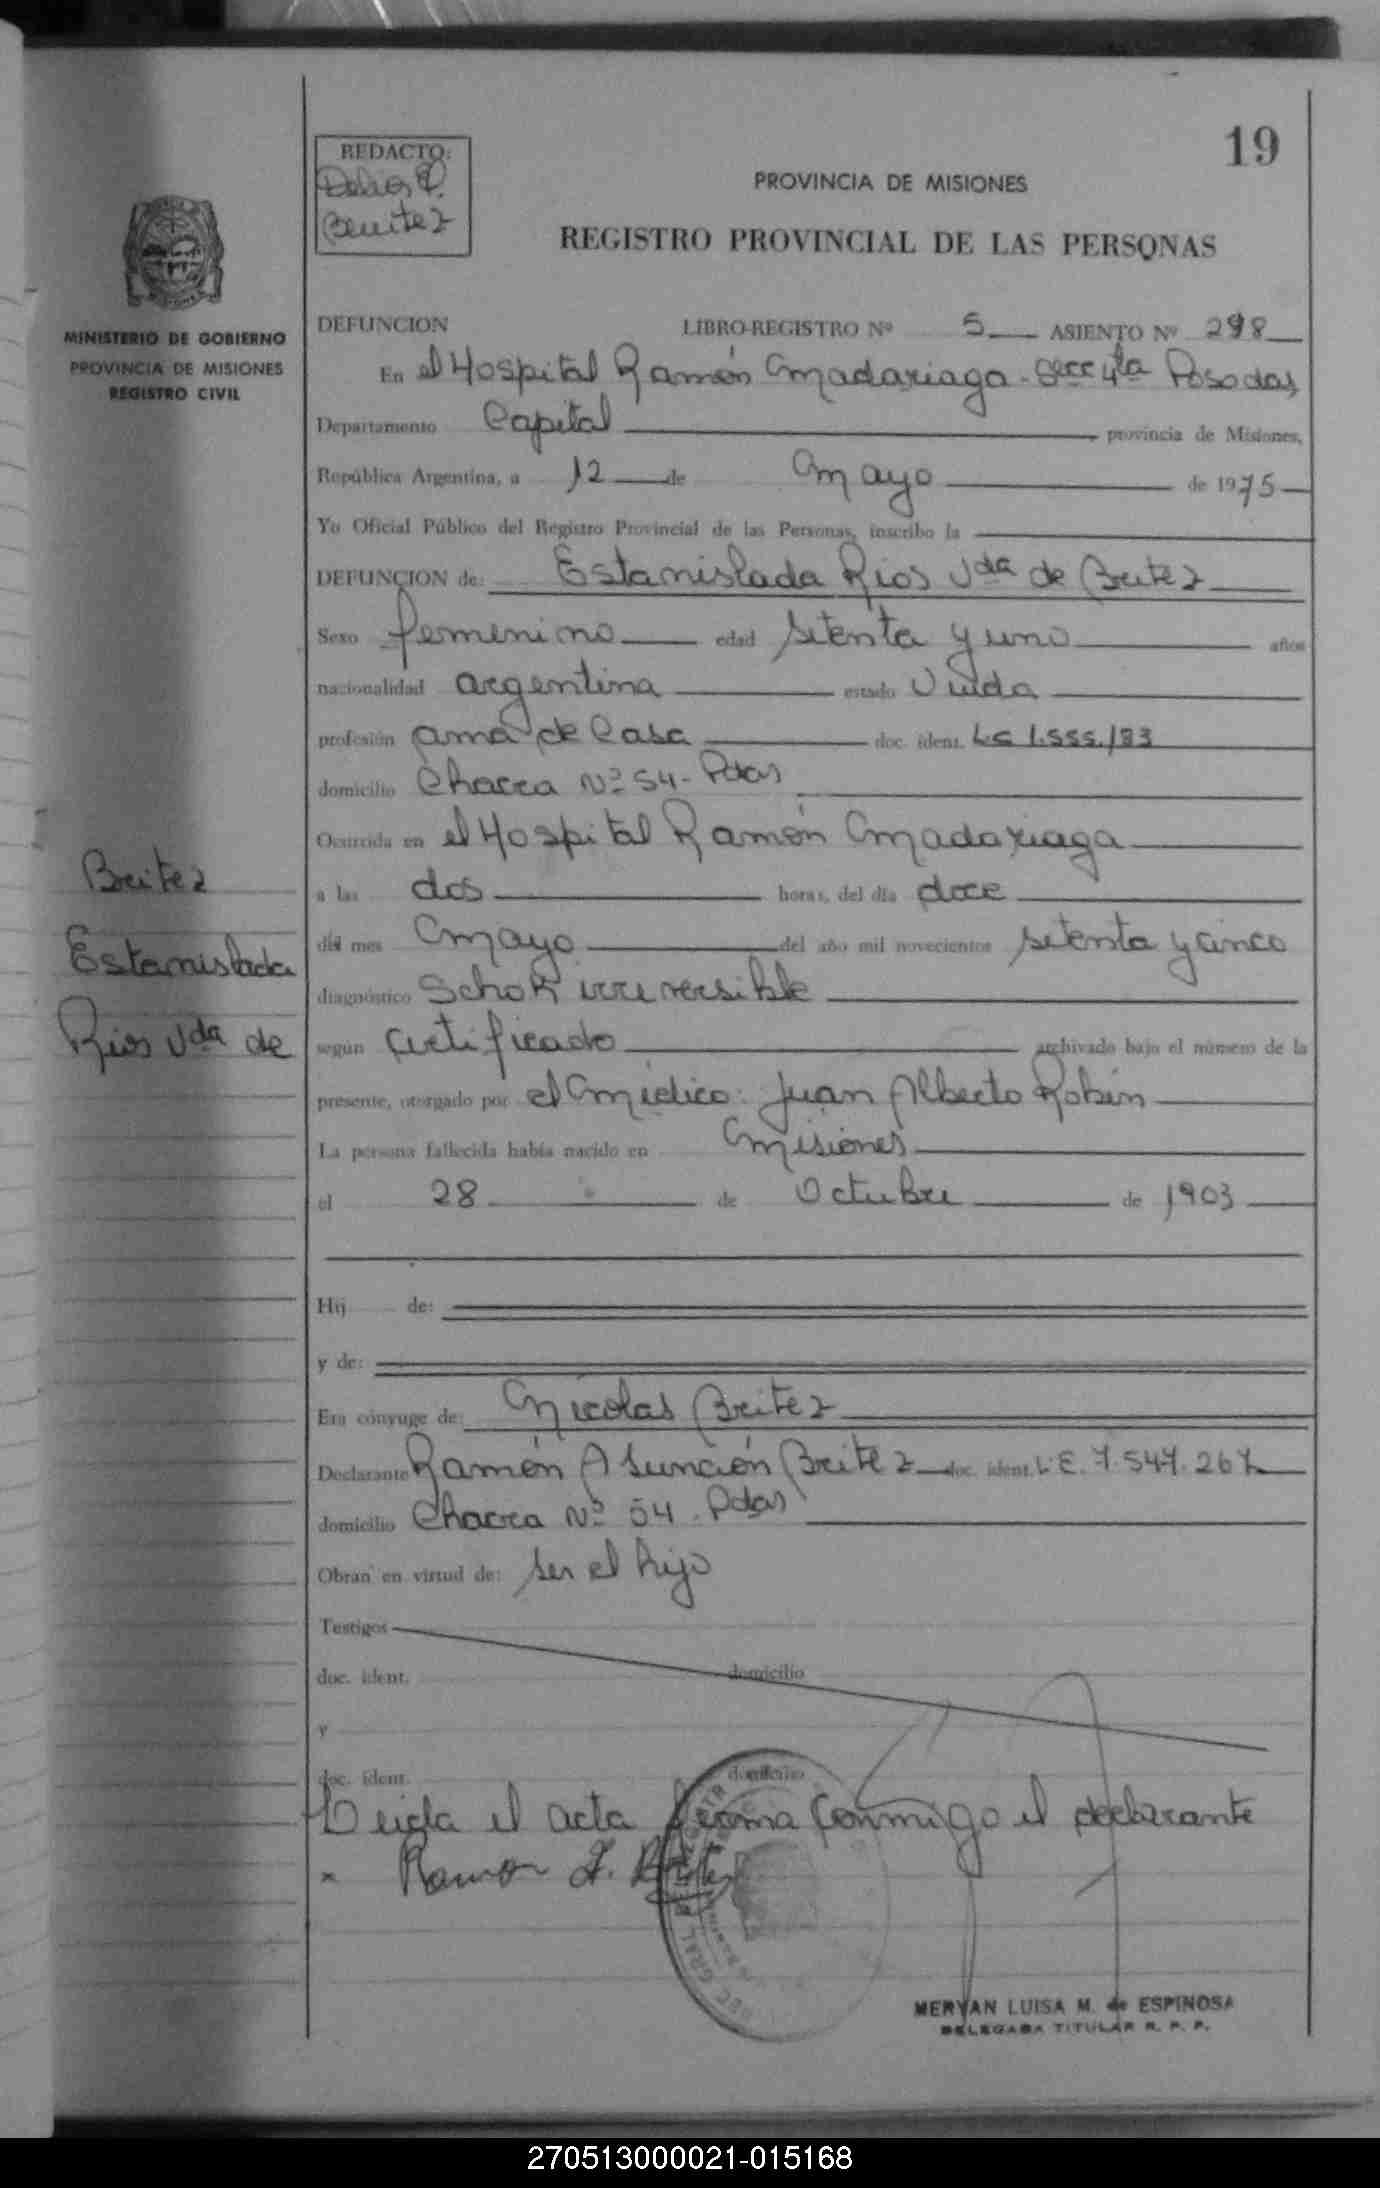 19
REDACTO:
Benitez
PROVINCIA DE MISIONES
REGISTRO PROVINCIAL DE LAS PERSONAS
MINISTERIO DE GOBIERNO
PROVINCIA DE MISIONES
REGISTRO CIVIL
DEFUNCION LIBRO-REGISTRO Nº 5 ASIENTO Nº 298
En el Hospital Ramón Madariaga - Secc 4ta Posadas
Departamento Capital provincia de Misiones,
República Argentina, a 12 de Mayo de 1975
Yo Oficial Público del Registro Provincial de las Personas, inscribo la
DEFUNCION de: Estanislada Rios Vda de Britez
Sexo femenino edad setenta y uno años
nacionalidad argentina estado Viuda
profesión ama de Casa doc. ident. LC
domicilio Chacra Nº 54 - Pdas
Ocurrida en el Hospital Ramón Madariaga
a las dos horas, del día doce
del mes Mayo del año mil novecientos setenta y cinco
diagnóstico Schok irreversible
según certificado archivado bajo el número de la
presente, otorgado por el Médico: Juan Alberto Robin
La persona fallecida había nacido en Misiones
el 28 de Octubre de 1903
Hij de:
y de:
Era cónyuge de: Nicolas Britez
Declarante Ramón Asunción Britez doc. ident. L.E. 7.547.267
domicilio Chacra Nº 54 - Pdas
Obran en virtud de: ser el hijo
Testigos
doc. ident. domicilio
y
doc. ident. domicilio
Leida el acta firma conmigo el declarante
x Ramon A. Britez
MERYAN LUISA M. de ESPINOSA
DELEGADA TITULAR R. P. P.
Britez
Estanislada
Rios Vda de
270513000021-015168